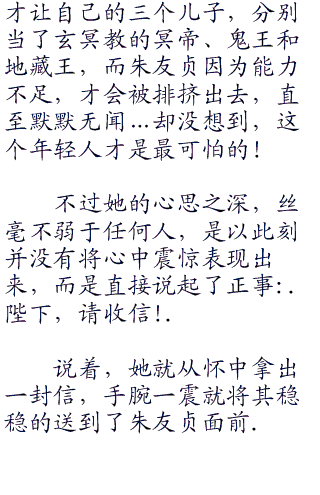 才让自己的三个儿子，分别
当了玄冥教的冥帝、鬼王和
地藏王，而朱友贞因为能力
不足，才会被排挤出去，直
至默默无闻...却没想到，这
个年轻人才是最可怕的！
不过她的心思之深，丝
毫不弱于任何人，是以此刻
并没有将心中震惊表现出
来，而是直接说起了正事:.
陛下，请收信!.
说着，她就从怀中拿出
一封信，手腕一震就将其稳
稳的送到了朱友贞面前.